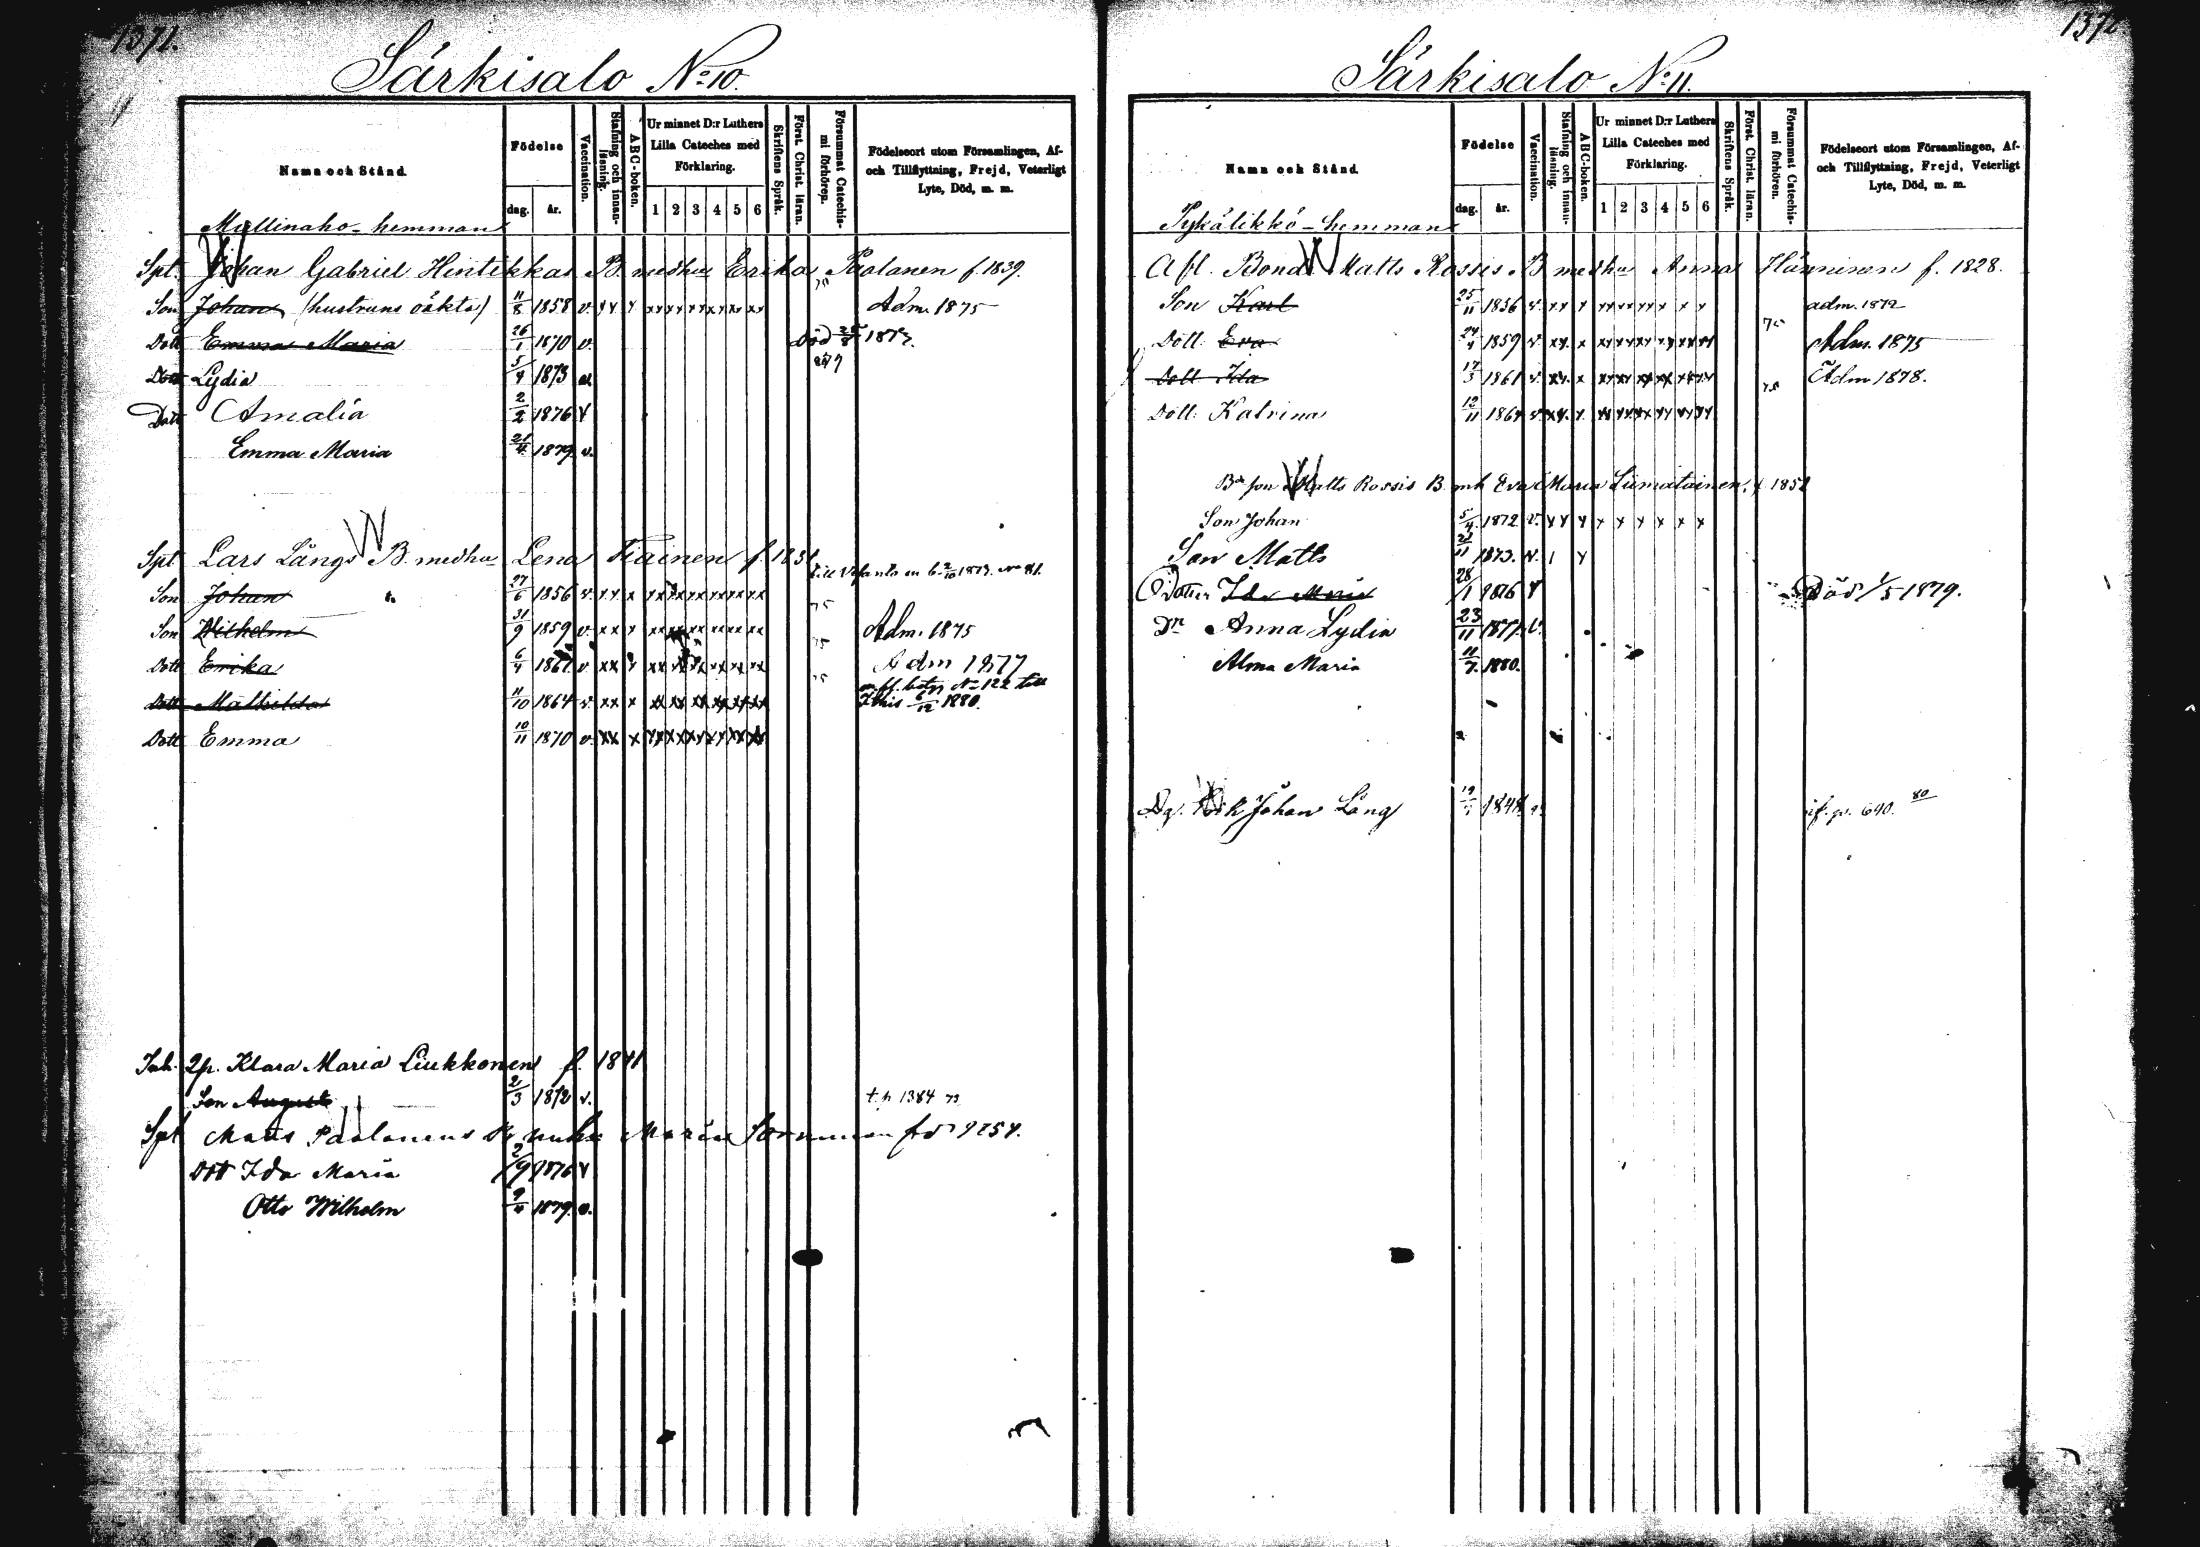 1371.
Särkisalo No: 10.
Namn och Stånd.
Födelse
dag. år.
Vaccination.
Stafning och innanläsning.
ABC-boken.
Ur minnet D:r Luthers Lilla Cateches med Förklaring.
1 2 3 4 5 6
Skriftens Språk.
Först. Christ. läran.
Försummat Catechismi förhören.
Födelseort utom Församlingen, Af- och Tillflyttning, Frejd, Veterligt Lyte, Död, m. m.
Myllinaho - hemman
Spt. Johan Gabriel Hintikkas B. medhu Erika Paalanen f. 1839.
Son Johan (hustruns oäkta) 11/8 1858 v. Adm. 1875
Dott Emma Maria 26/1 1870 v. Död 1873.
Dott Lydia 5/4 1873
Dott Amalia 2/2 1876 v
Emma Maria 21/4 1879. v.
Spt Lars Långs B. medhu Lena Tiainen f.
Son Johan 27/6 1856 v.
Son Wilhelm 31/9 1859 v. Adm. 1875
Dott Erika 6/4 v Adm 1877
Dott Mathilda 11/10 1864 v. No 122 till 6/12 1880.
Dott Emma 10/11 1870 v.
Inh. 2p. Klara Maria Liukkonen f. 1841
Son August 2/3 1872 v. t. p. 1384 73
Spt Matts Paalanens Maria
Dott Ida Maria 2/9 1876 v
Otto Wilhelm 9/4 1879. v.
1372.
Särkisalo No: 11.
Namn och Stånd.
Födelse
dag. år.
Vaccination.
Stafning och innanläsning.
ABC-boken.
Ur minnet D:r Luthers Lilla Cateches med Förklaring.
1 2 3 4 5 6
Skriftens Språk.
Först. Christ. läran.
Försummat Catechismi förhören.
Födelseort utom Församlingen, Af- och Tillflyttning, Frejd, Veterligt Lyte, Död, m. m.
Pykälikkö - hemman
Afl. Bond. Matts Rossis B medhu Anna Hänninen f. 1828.
Son Karl 25/11 1856 v. adm. 1872
Dott Eva 24/4 1859 v. Adm. 1875
Dott Ida 17/3 1861 v. Adm 1878.
Dott. Katrina 12/11 1864 v.
Bd son Matts Rossis B. mh Eva Maria Liimatainen, f 1852
Son Johan 5/4 1872 v.
Son Matts 21/11 1873. v.
Dotter Ida Maria 28/1 1876 v Död 1/5 1879.
Dr Anna Lydia 23/11 1877 v.
Alma Maria 11/7 1880.
Johan Lång 1848 p. 640. 80